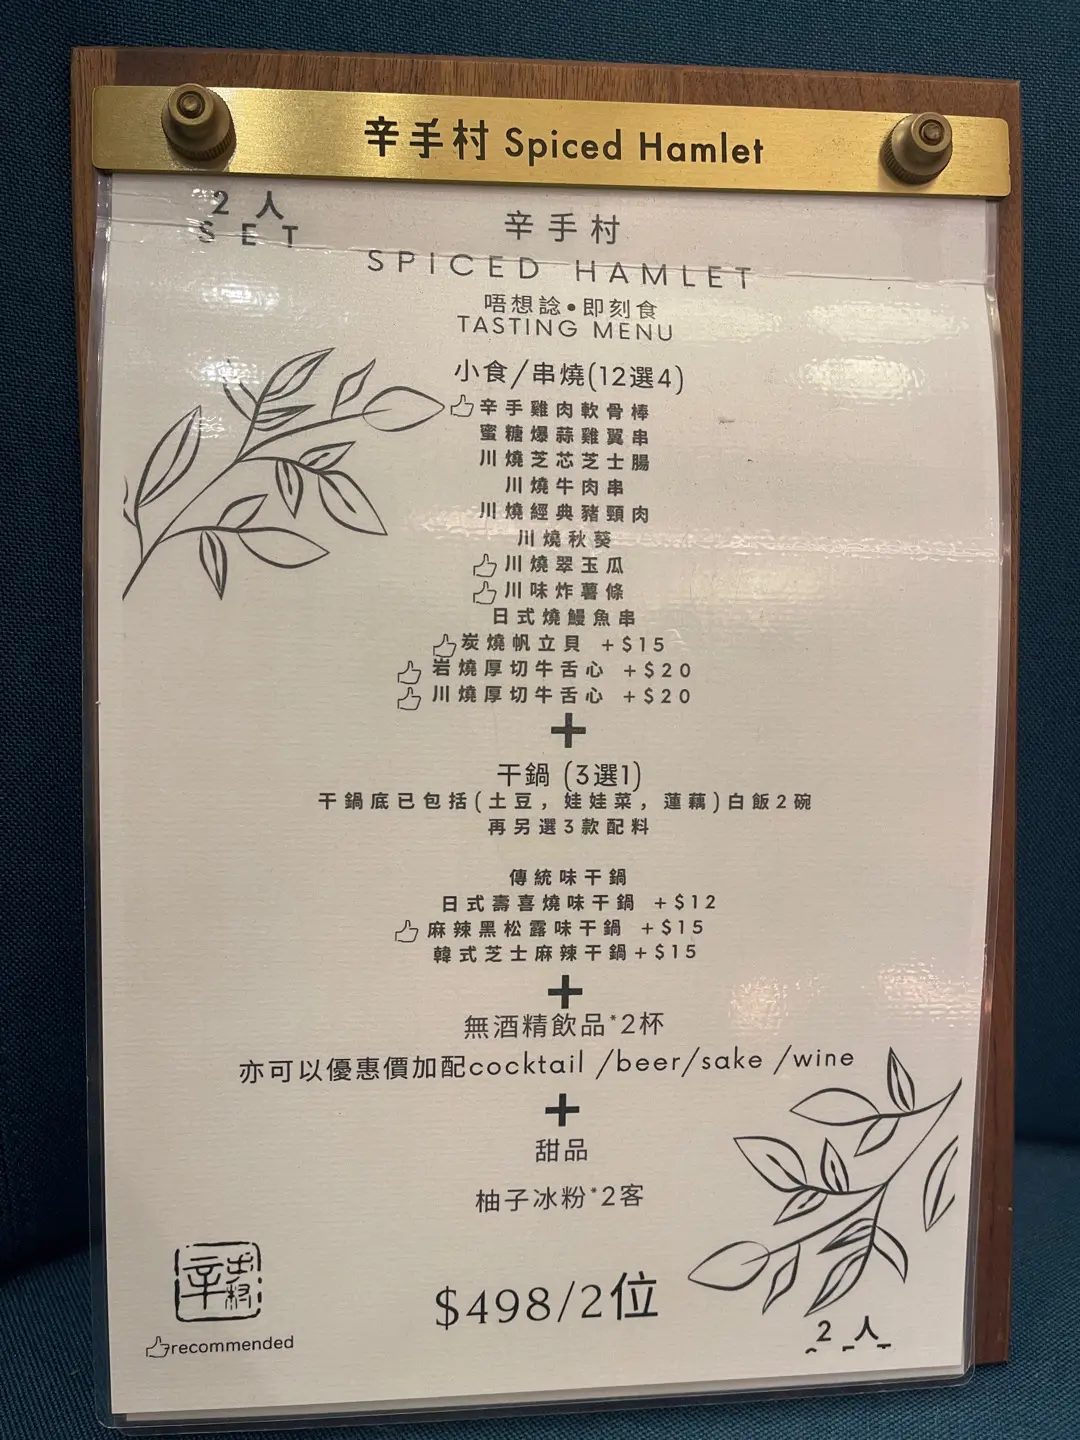 辛手村 Spiced Hamlet
2人
SET
辛手村
SPICED HAMLET
唔想諗•即刻食
TASTING MENU
小食/串燒(12選4)
辛手雞肉軟骨棒
蜜糖爆蒜雞翼串
川燒芝芯芝士腸
川燒牛肉串
川燒經典豬頸肉
川燒秋葵
川燒翠玉瓜
川味炸薯條
日式燒鰻魚串
炭燒帆立貝 +$15
岩燒厚切牛舌心 +$20
川燒厚切牛舌心 +$20
+
干鍋 (3選1)
干鍋底已包括(土豆，娃娃菜，蓮藕)白飯2碗
再另選3款配料
傳統味干鍋
日式壽喜燒味干鍋 +$12
麻辣黑松露味干鍋 +$15
韓式芝士麻辣干鍋+$15
+
無酒精飲品*2杯
亦可以優惠價加配cocktail /beer/sake /wine
+
甜品
柚子冰粉*2客
$498/2位
辛手村
recommended
2人
SET